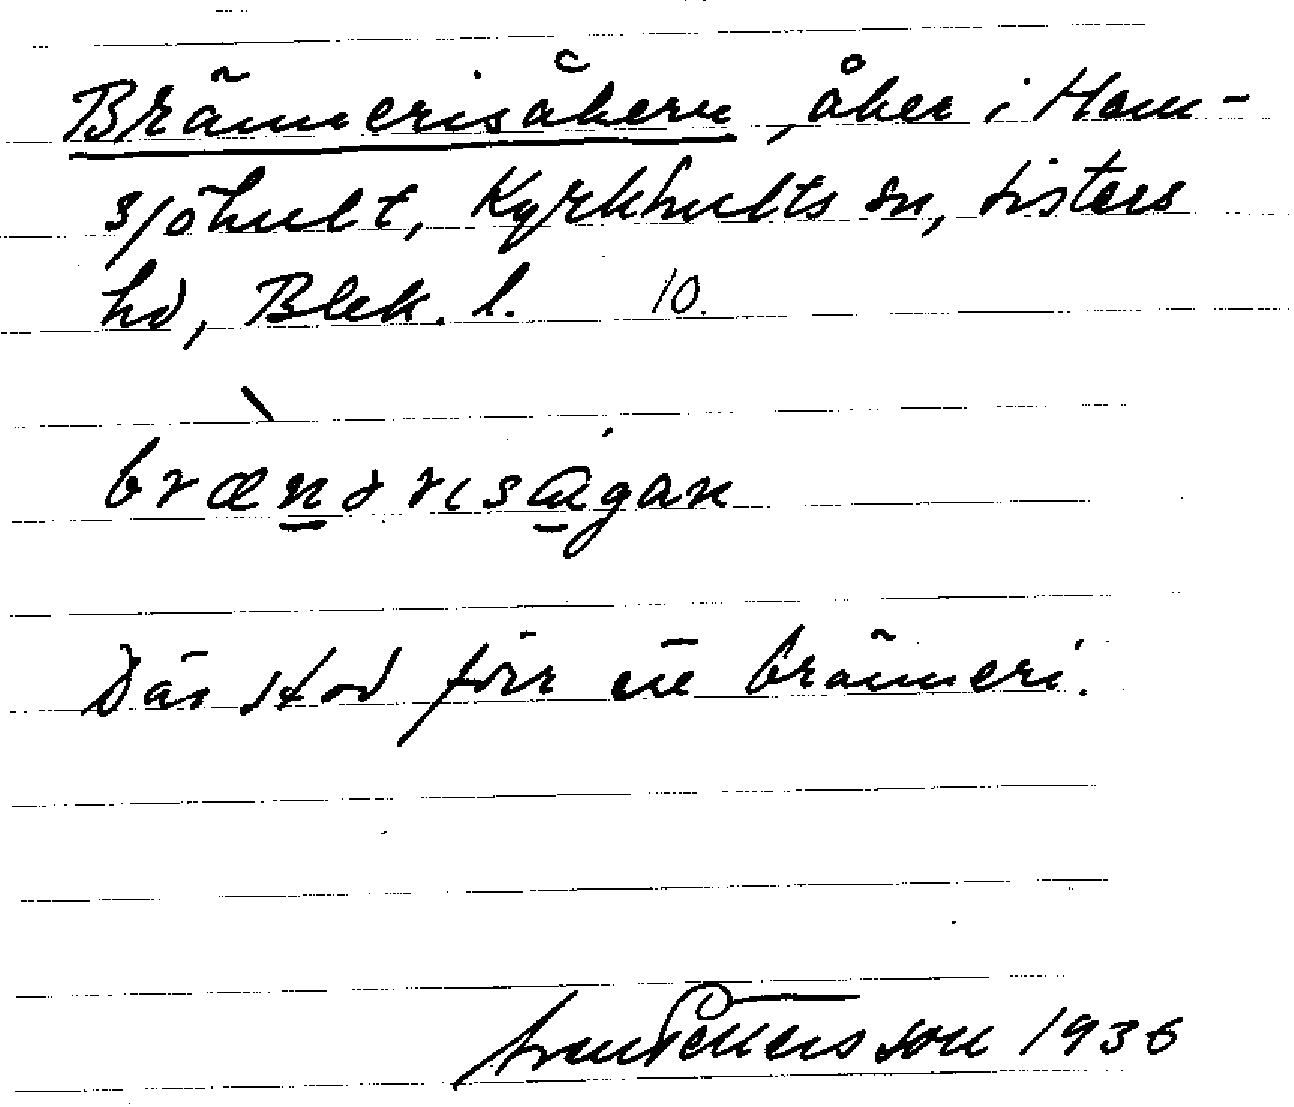 Brännerisåkern, åker i Hem-
sjöhult, Kyrkhults sn, Listers
hd, Blek. l. 10.
brænərɩsågan
Där stod förr ett bränneri.
Pettersson 1936